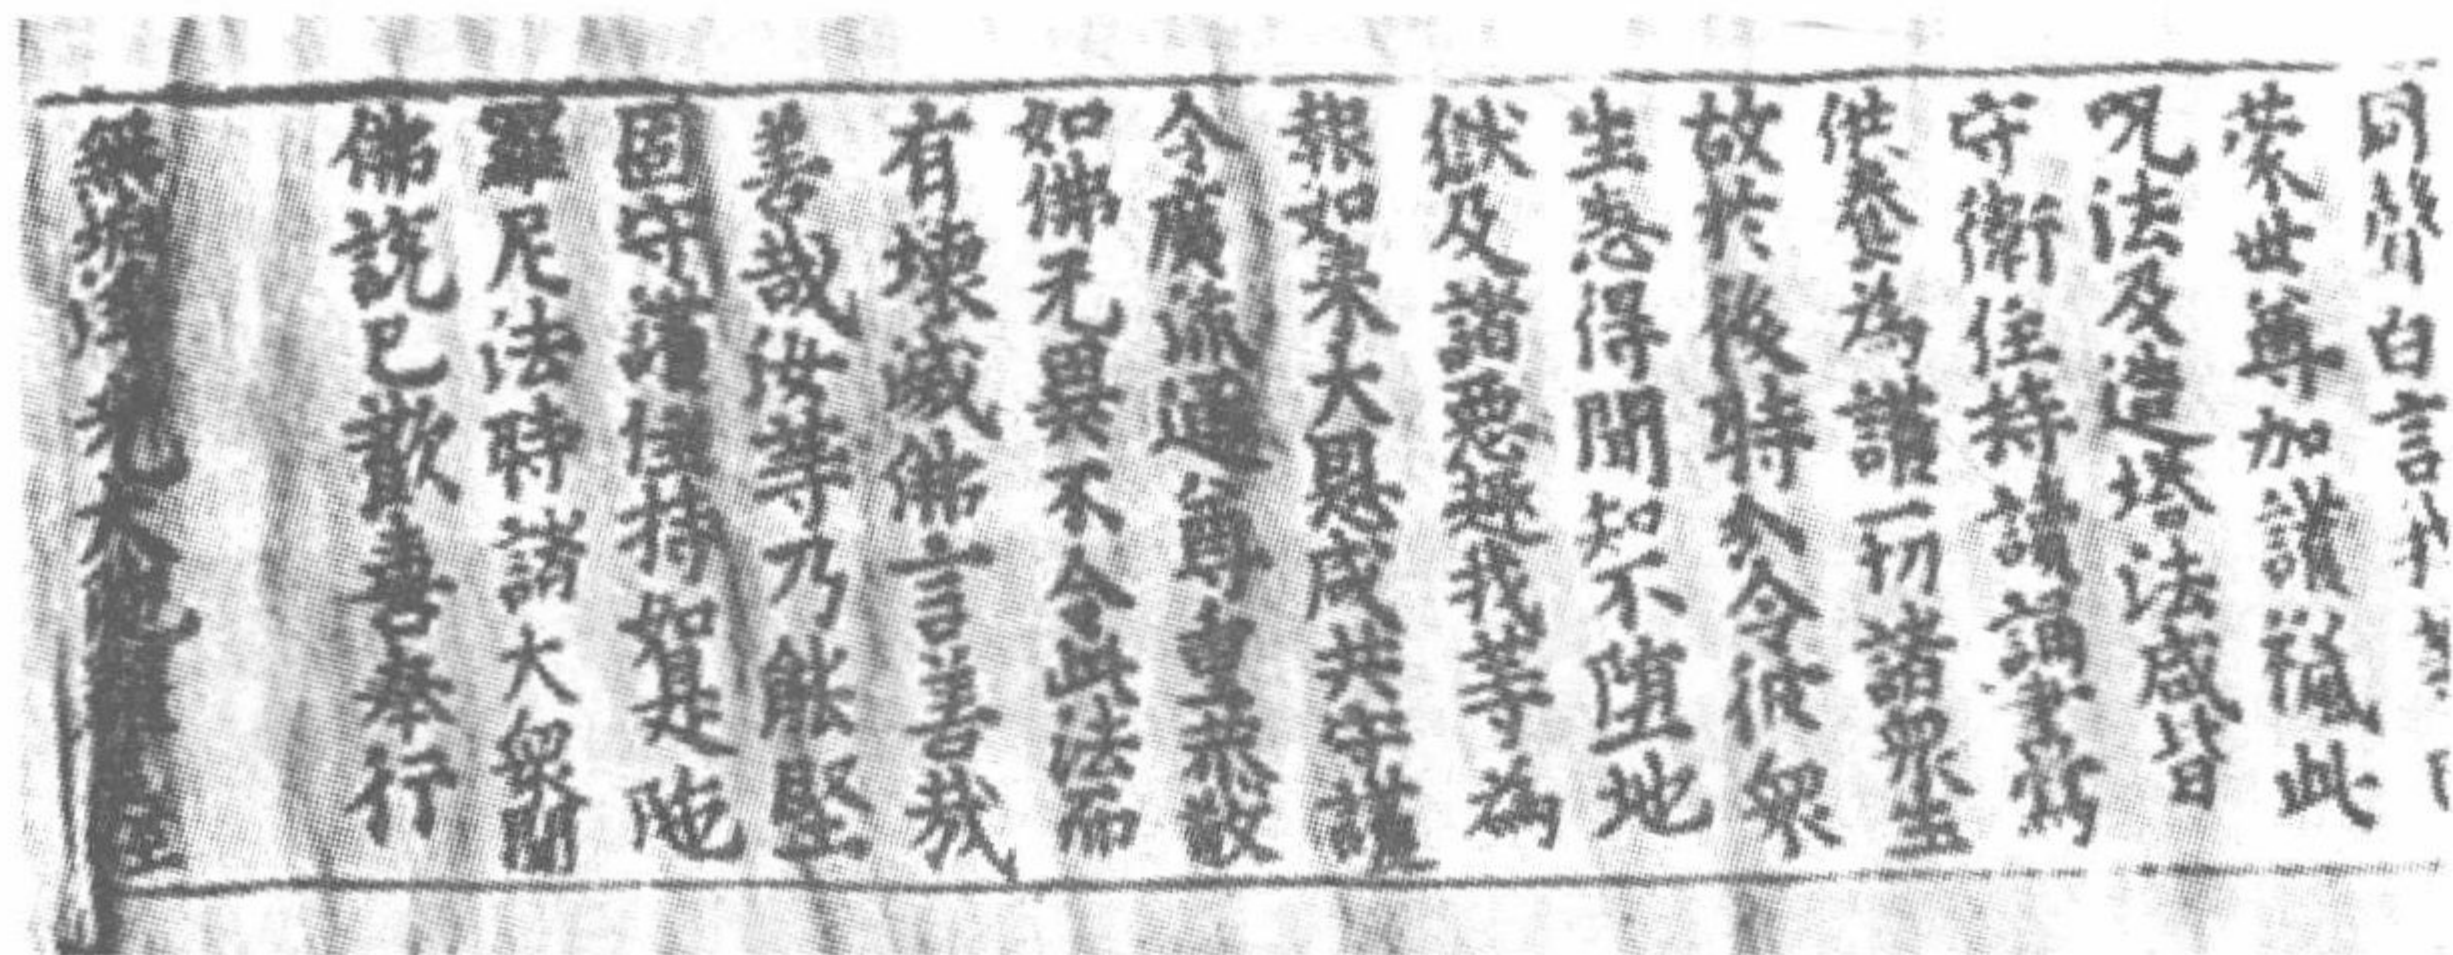 同聲白言我等
蒙世尊加護授此
咒法及造塔法咸皆
守衛住持讀誦書寫
供養為護一切諸眾生
故於後時分令彼眾
生悉得聞知不墮地
獄及諸惡趣我等為
報如來大恩咸共守護
令廣流通尊重恭敬
如佛无異不令此法而
有壞滅佛言善哉
善哉汝等乃能堅
固守護住持如是陁
羅尼法時諸大眾聞
佛說已歡喜奉行
無垢淨光大陁羅尼經